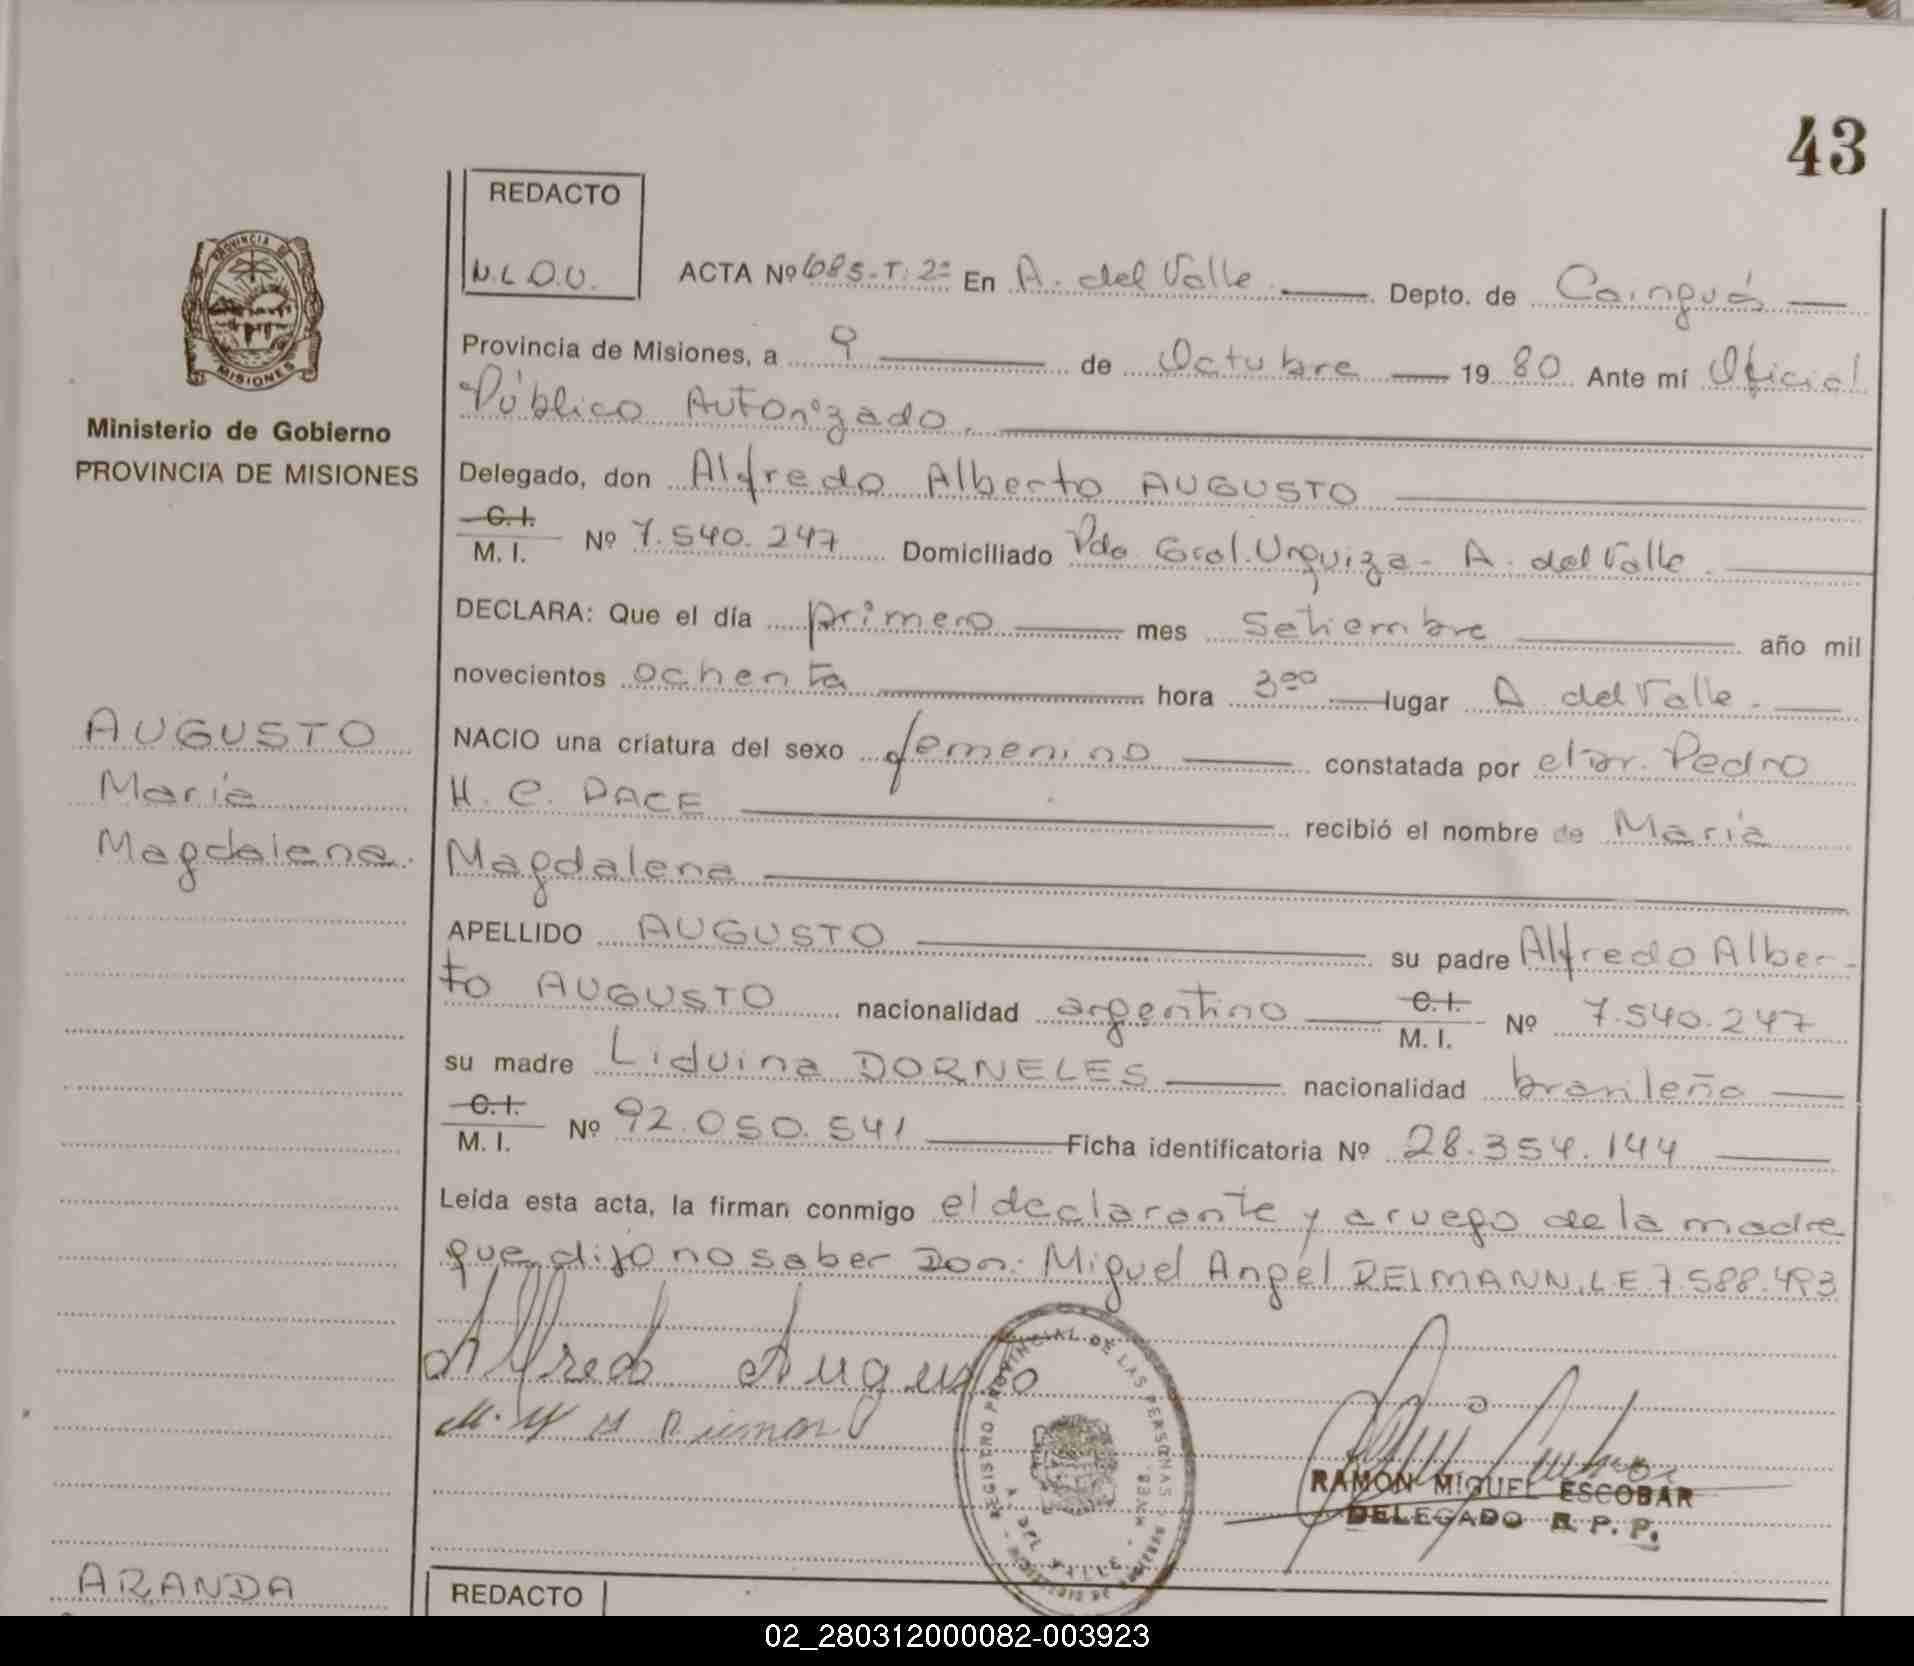 43
REDACTO
N.L.O.U.
PROVINCIA DE
MISIONES
Ministerio de Gobierno
PROVINCIA DE MISIONES
ACTA Nº 685-T: 2º En A. del Valle Depto. de Cainguás
Provincia de Misiones, a 9 de Octubre 1980 Ante mí Oficial
Público Autorizado.
Delegado, don Alfredo Alberto AUGUSTO
C.I.
M. I. Nº 7.540.247 Domiciliado Pdo. Gral. Urquiza - A. del Valle.
DECLARA: Que el día primero mes Setiembre año mil
novecientos ochenta hora 3⁰⁰ lugar A. del Valle.
AUGUSTO
María
Magdalena.
NACIO una criatura del sexo femenino constatada por el Dr. Pedro
H. C. PACE recibió el nombre de María
Magdalena
APELLIDO AUGUSTO su padre Alfredo Alber-
to AUGUSTO nacionalidad argentino C.I. M. I. Nº 7.540.247
su madre Liduina DORNELES nacionalidad brasileña
C.I.
M. I. Nº 92.050.541 Ficha identificatoria Nº 28.354.144
Leída esta acta, la firman conmigo el declarante y a ruego de la madre
que dijo no saber Don: Miguel Angel REIMANN, L.E. 7.588.493
Alfredo Augusto
REGISTRO PROVINCIAL DE LAS PERSONAS
RAMON MIGUEL ESCOBAR
DELEGADO R. P. P.
ARANDA
REDACTO
02_280312000082-003923